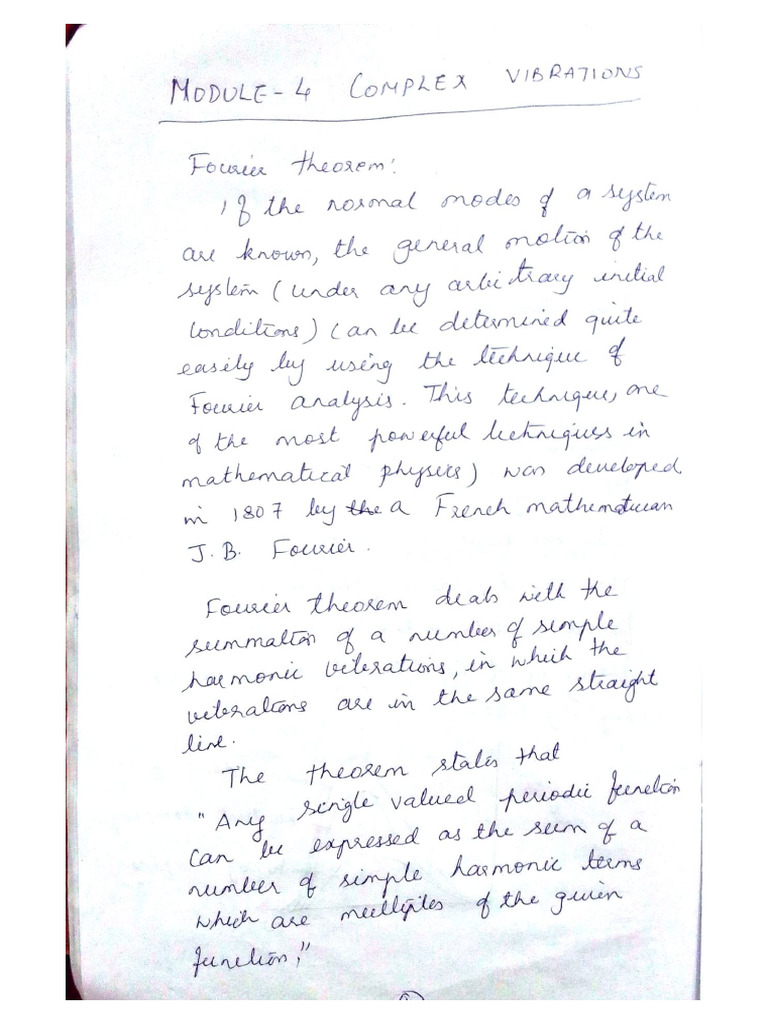 MODULE-4 COMPLEX VIBRATIONS
Fourier theorem:
If the normal modes of a system
are known, the general motion of the
system (under any arbitrary initial
conditions) can be determined quite
easily by using the technique of
Fourier analysis. This technique, one
of the most powerful techniques in
mathematical physics) was developed
in 1807 by the a French mathematician
J.B. Fourier.
Fourier theorem deals with the
summation of a number of simple
harmonic vibrations, in which the
vibrations are in the same straight
line.
The theorem states that
"Any single valued periodic function
can be expressed as the sum of a
number of simple harmonic terms
which are multiples of the given
function."